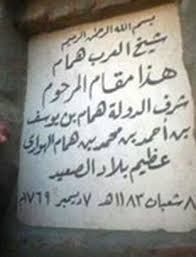 بسم الله الرحمن الرحيم
شيخ العرب همام
هذا مقام المرحوم
شرف الدولة همام بن يوسف
بن أحمد بن محمد بن همام الهوارى
عظيم بلاد الصعيد
٨ شعبان ١١٨٣هـ ٧ ديسمبر ١٧٦٩م